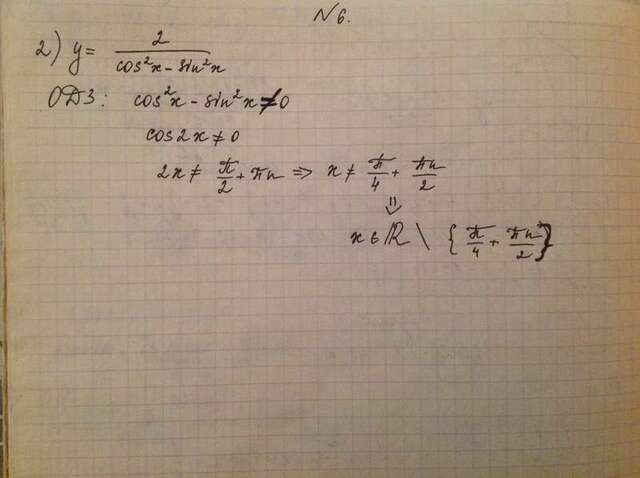 N 6.
2) y = 2 / (cos²x - sin²x)
ОДЗ: cos²x - sin²x ≠ 0
cos2x ≠ 0
2x ≠ π/2 + πn => x ≠ π/4 + πn/2
⇓
x ∈ ℝ \ {π/4 + πn/2}